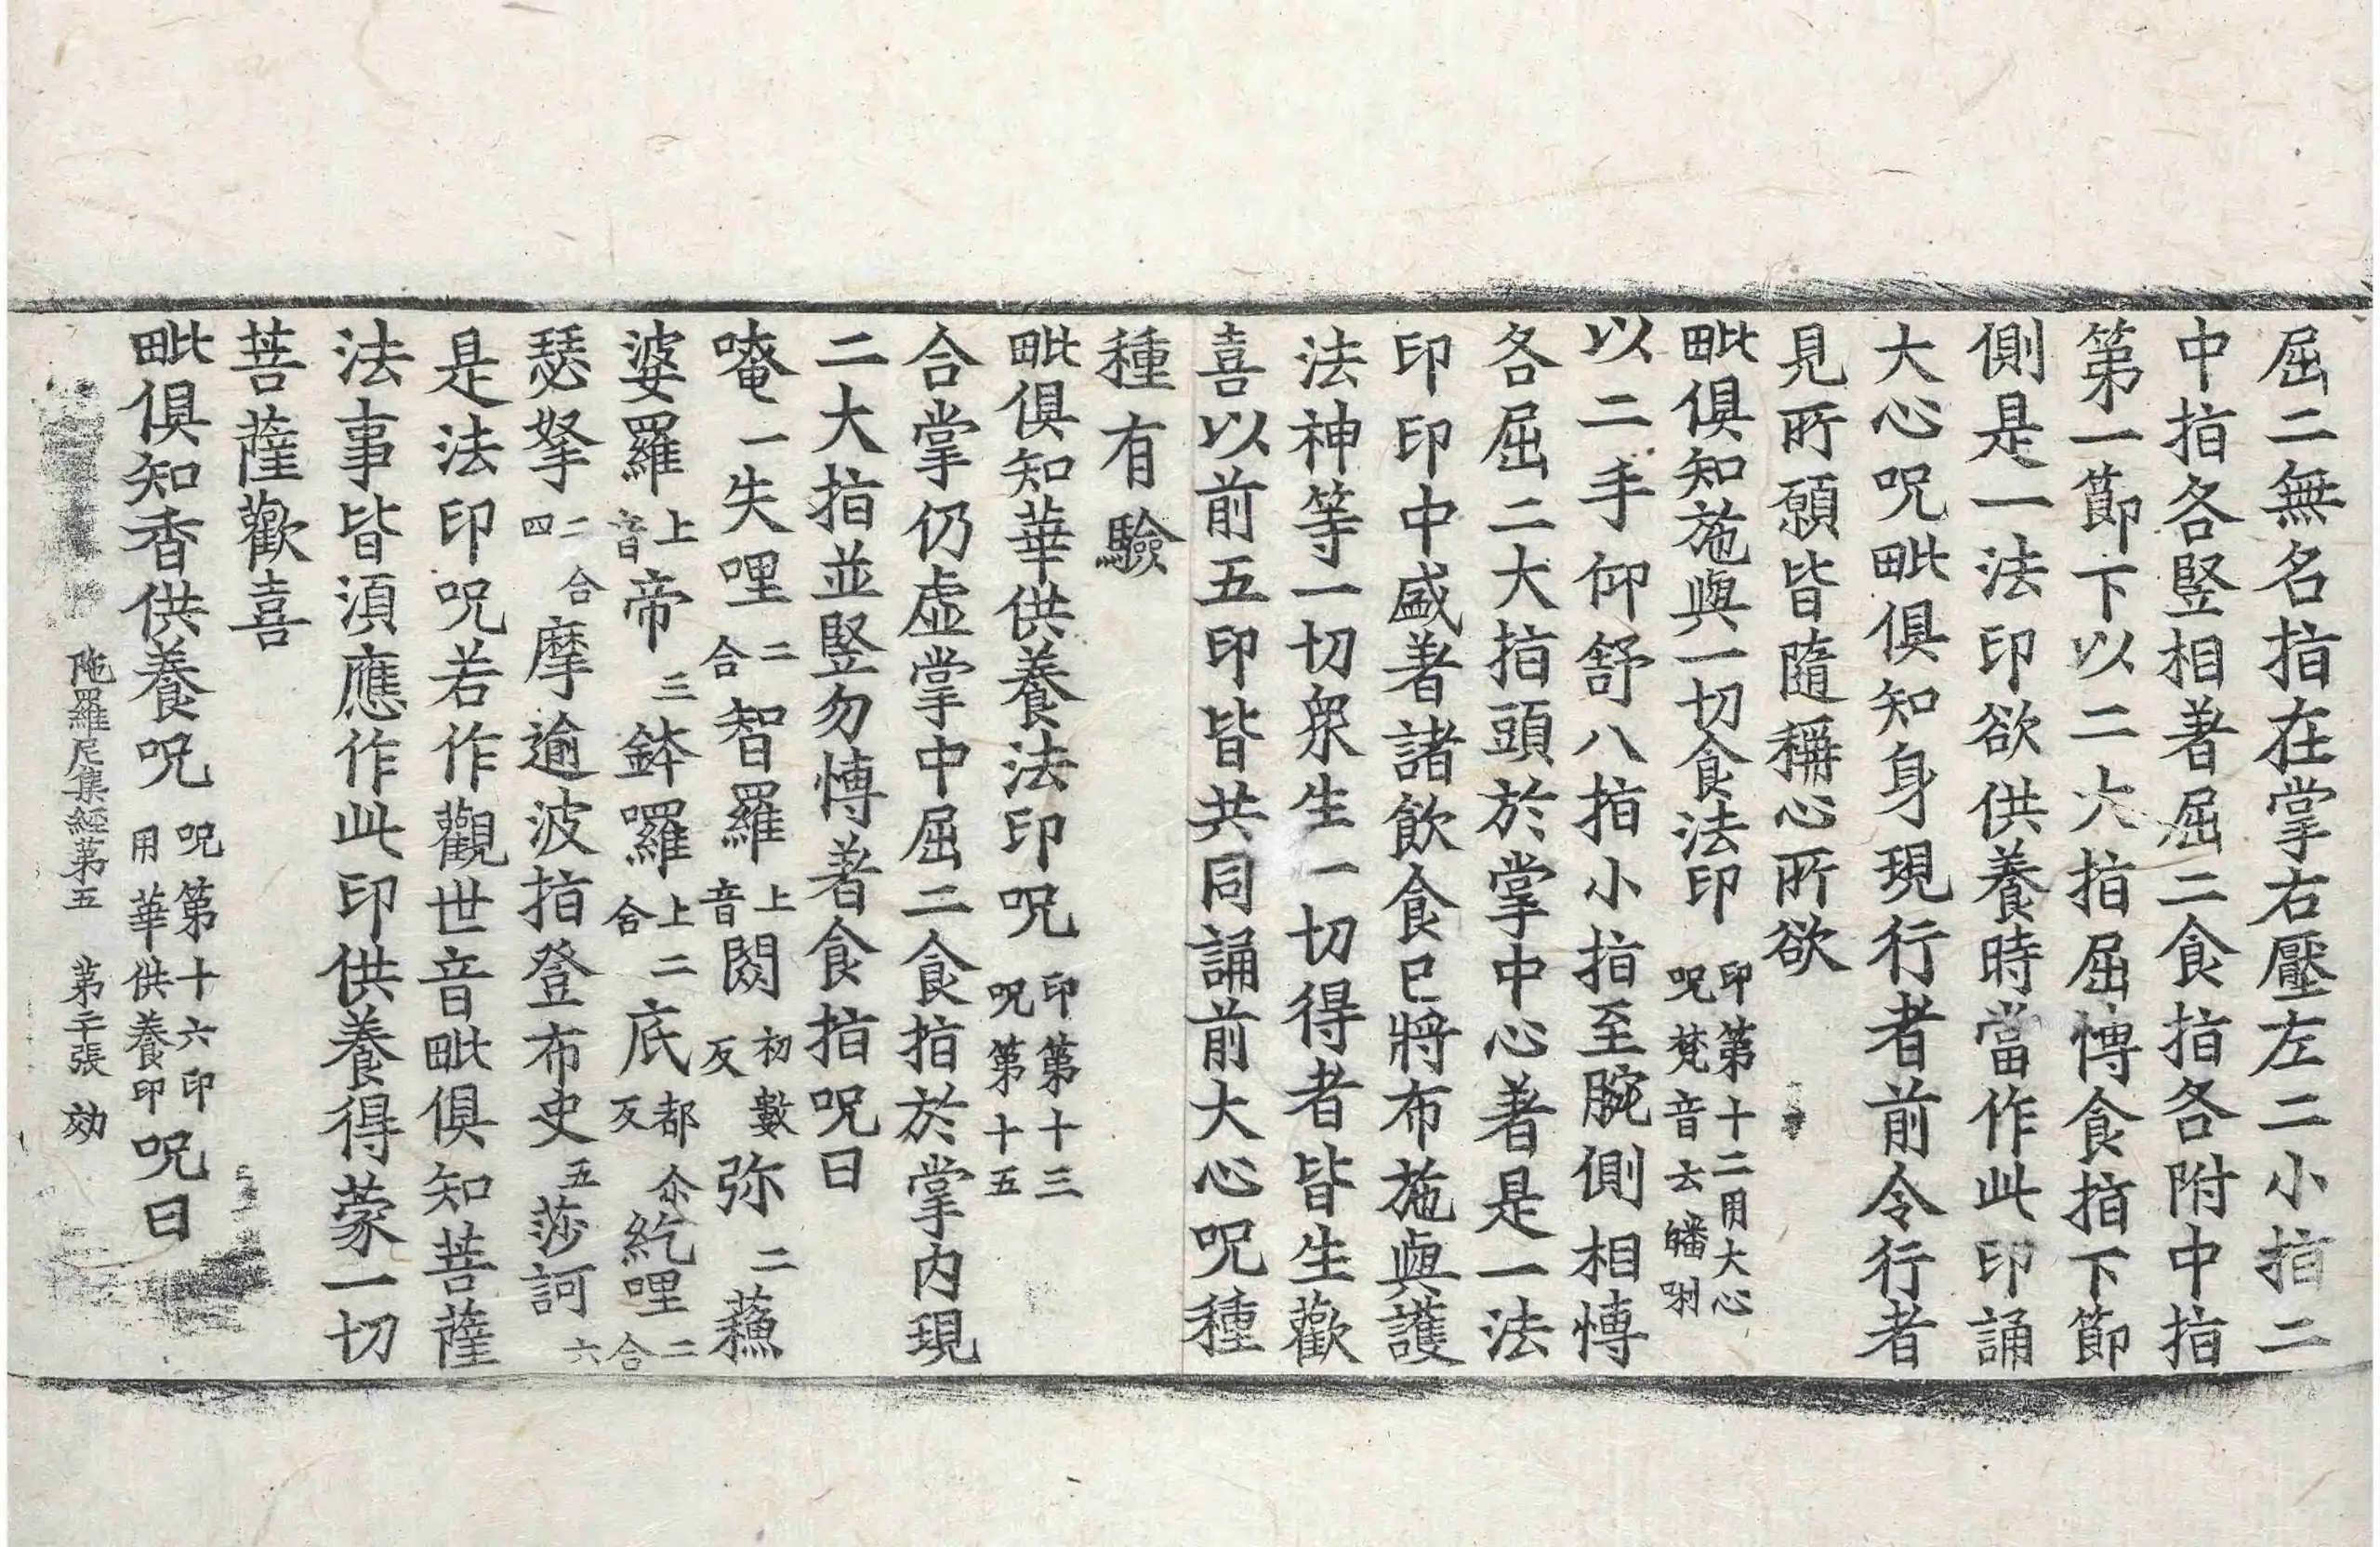 屈二無名指在掌右壓左二小指二
中指各竪相著屈二食指各附中指
第一節下以二大指屈愽食指下節
側是一法印欲供養時當作此印誦
大心呪毗俱知身現行者前令行者
見所願皆隨稱心所欲
毗俱知施與一切食法印 印第十二用大心呪梵音云皤唎
以二手仰舒八指小指至腕側相愽
各屈二大指頭於掌中心著是一法
印印中盛著諸飲食已將布施與護
法神等一切衆生一切得者皆生歡
喜以前五印皆共同誦前大心呪種
種有驗
毗俱知華供養法印呪 印第十三呪第十五
合掌仍虛掌中屈二食指於掌內現
二大指並竪勿愽著食指呪曰
唵一失哩二合智羅上音閦初數反弥二蘓
婆羅上音帝三鉢囉上二合底都尒反紇哩二合
瑟拏二合四摩逾波指登布史五莎訶六
是法印呪若作觀世音毗俱知菩薩
法事皆湏應作此印供養得蒙一切
菩薩歡喜
毗俱知香供養呪 呪第十六印用華供養印 呪曰
陁羅尼集経苐五 苐二十張 効